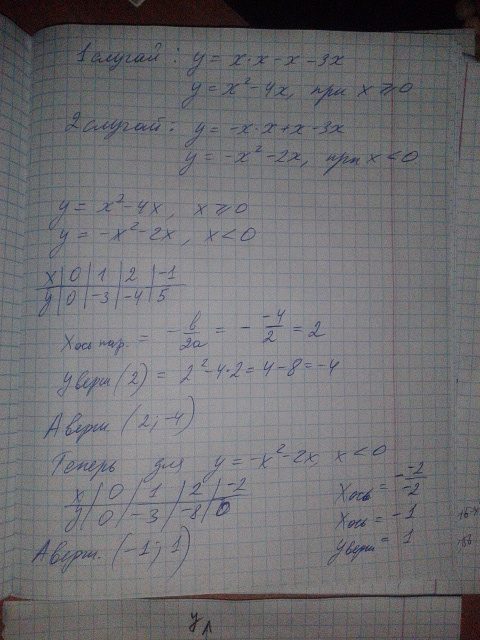 1 случай: y = x·x - x - 3x
y = x² - 4x, при x ⩾ 0
2 случай: y = -x·x + x - 3x
y = -x² - 2x, при x < 0
y = x² - 4x, x ⩾ 0
y = -x² - 2x, x < 0
x | 0 | 1 | 2 | -1
y | 0 | -3 | -4 | 5
x ось пар. = -b/2a = - -4/2 = 2
y верш (2) = 2² - 4·2 = 4 - 8 = -4
A верш. (2; -4)
Теперь для y = -x² - 2x, x < 0
x | 0 | 1 | 2 | -2
y | 0 | -3 | -8 | 0
x ось = - -2/-2
x ось = -1
y верш = 1
A верш. (-1; 1)
y